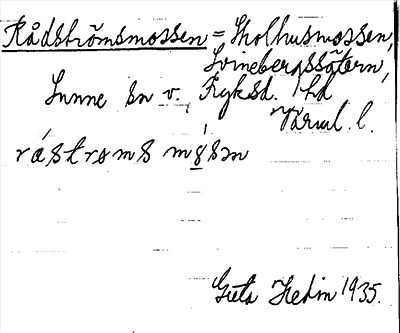 Rådströmsmossen = Skolhusmossen,
Svinebergssätern,
Sunne sn v., Fryksd. hd
Värml. l.
råstrøms mo̤sən
Greta Hedin 1935.